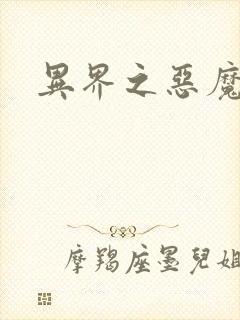 異界之惡魔
摩羯座墨兒姐